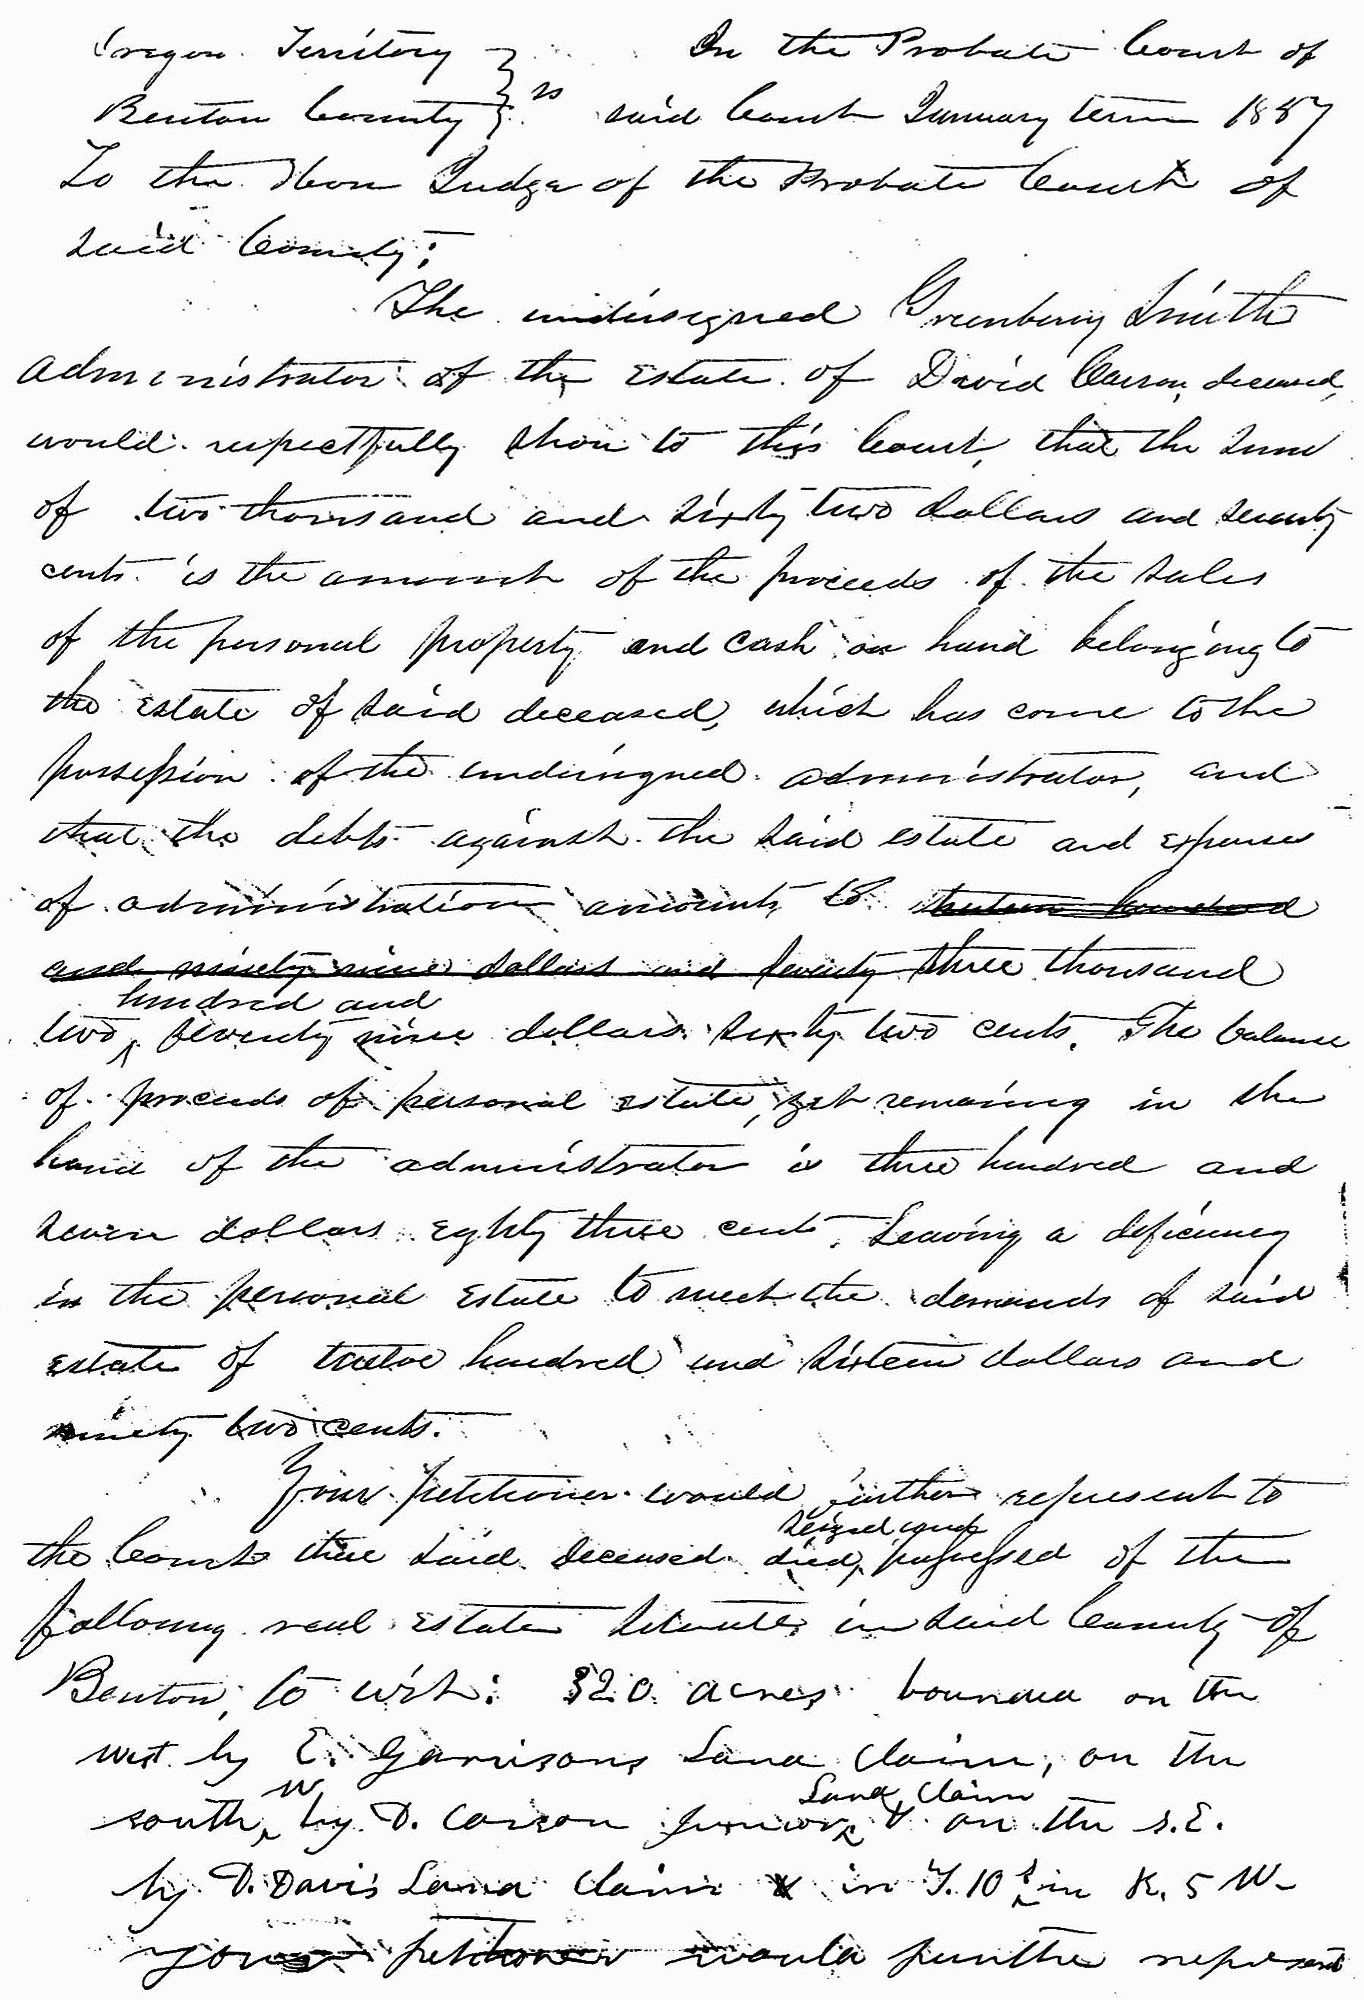 Oregon Territory } In the Probate Court of
Benton County } ss said Court January term 1857
To the Hon Judge of the Probate Court of
said County;
The undersigned Greenberry Smith
administrator of the Estate of David Carson, deceased,
would respectfully show to this Court, that the sum
of two thousand and sixty two dollars and seventy
cents is the amount of the proceeds of the sales
of the personal property and cash on hand belonging to
the estate of said deceased, which has come to the
possession of the undersigned administrator, and
that the debts against the said estate and expenses
of administration amounts to thirteen hundred
and ninety nine dollars and seventy three thousand
hundred and
two ^ seventy nine dollars sixty two cents. The balance
of proceeds of personal estate, yet remaining in the
hand of the administrator is three hundred and
seven dollars eighty three cents. Leaving a deficiency
in the personal Estate to meet the demands of said
estate of twelve hundred and sixteen dollars and
ninety two cents.
Your petitioner would further represent to
seized and
the Court that said deceased died ^ possessed of the
following real estate situate in said County of
Benton, to wit: 320 acres bounded on the
west by E. Garrisons Land Claim, on the
W Land Claim
south ^ by D. Carson Junior ^ & on the S.E.
by D. Davis Land Claim in T. 10 S in R. 5 W-
your petitioner would further represent